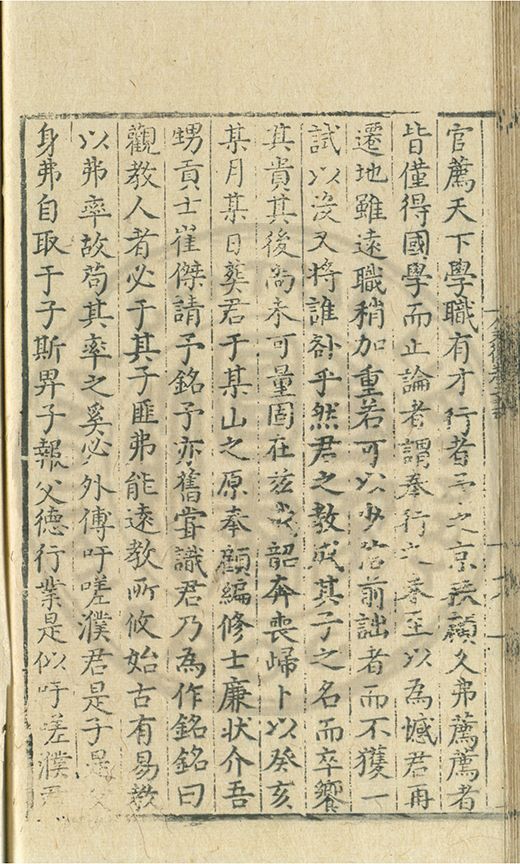 官薦天下學職有才行者予之京秩顧久弗薦薦者
皆僅得國學而止論者謂奉行之至以為憾君再
遷地雖遠職稍加重若可以少答前詘者而不獲一
試以沒又將誰郤乎然君之教成其子之名而卒饗
其貴其後尚未可量固在茲哉韶奔喪歸卜以癸亥
某月某日葬君于某山之原奉顧編修士廉狀介吾
甥貢士崔傑請予銘予亦舊嘗識君乃為作銘銘曰
觀教人者必于其子匪弗能遠教所攸始古有易教
以弗率故苟其率之奚必外傅吁嗟濮君是子是父
身弗自取于子斯畀子報父德行業是似吁嗟濮君